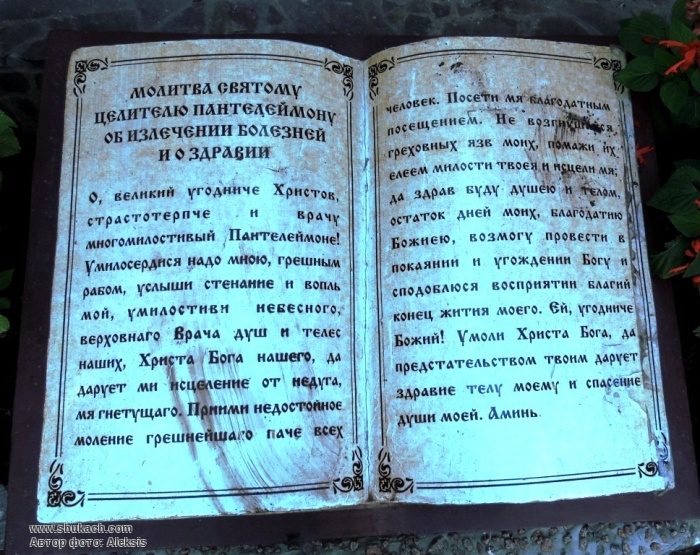 МОЛИТВА СВЯТОМУ
ЦЕЛИТЕЛЮ ПАНТЕЛЕЙМОНУ
ОБ ИЗЛЕЧЕНИИ БОЛЕЗНЕЙ
И О ЗДРАВИИ
О, великий угодниче Христов,
страстотерпче и врачу
многомилостивый Пантелеймоне!
Умилосердися надо мною, грешным
рабом, услыши стенание и вопль
мой, умилостиви небесного,
верховнаго Врача душ и телес
наших, Христа Бога нашего, да
дарует ми исцеление от недуга,
мя гнетущаго. Приими недостойное
моление грешнейшаго паче всех
человек. Посети мя благодатным
посещением. Не возгнушайся
греховных язв моих, помажи их
елеем милости твоея и исцели мя;
да здрав буду душею и телом,
остаток дней моих, благодатию
Божиею, возмогу провести в
покаянии и угождении Богу и
сподоблюся восприятии благий
конец жития моего. Ей, угодниче
Божий! Умоли Христа Бога, да
предстательством твоим дарует
здравие телу моему и спасение
души моей. Аминь
www.shukach.com
Автор фото: Aleksis